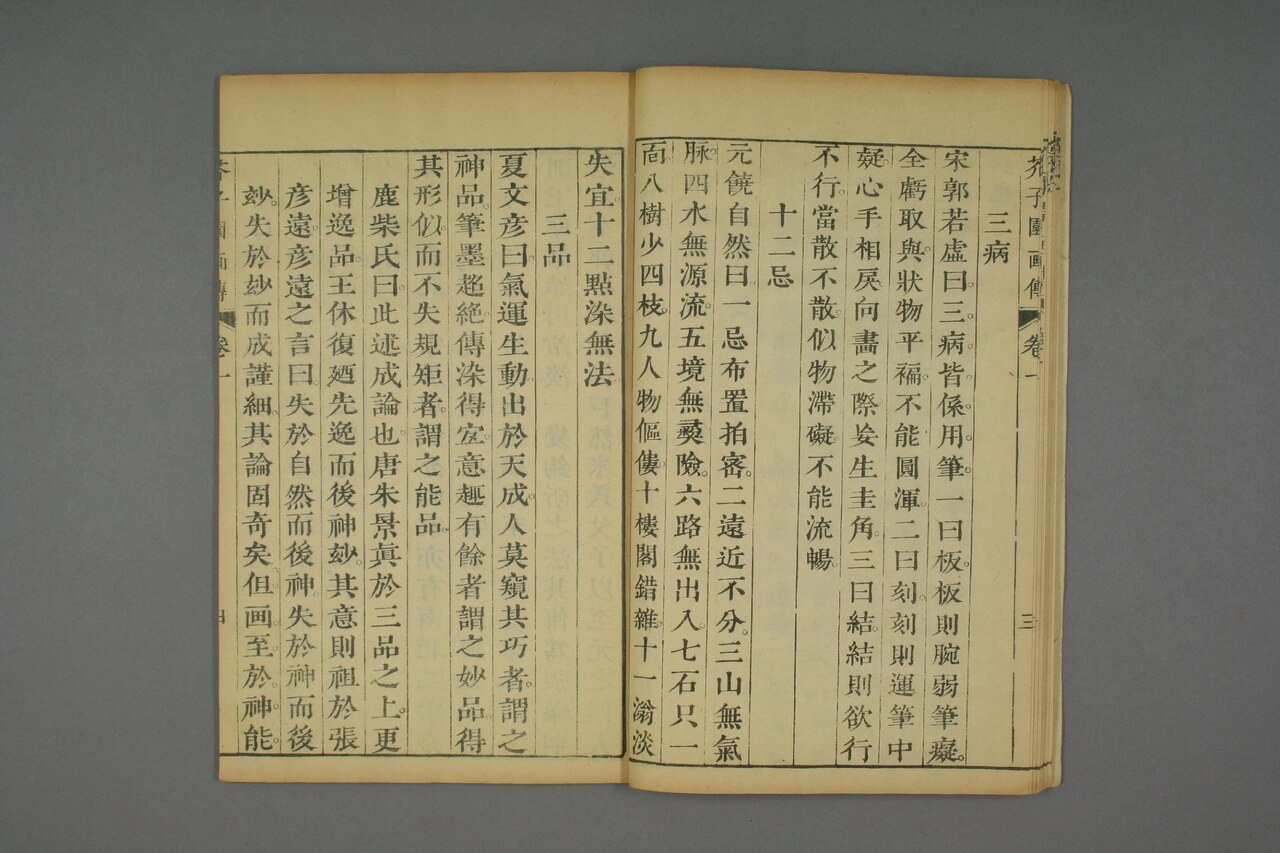 芥子園画傳 卷一 三
三病
宋郭若虛曰。三病。皆係用筆。一曰板。板則腕弱筆癡。
全虧取與。狀物平褊。不能圓渾。二曰刻。刻則運筆中
疑。心手相戾。向畫之際。妄生圭角。三曰結。結則欲行
不行。當散不散。似物滯礙。不能流暢。
十二忌
元饒自然曰。一忌布置拍密。二遠近不分。三山無氣
脉。四水無源流。五境無夷險。六路無出入。七石只一
面。八樹少四枝。九人物傴僂。十樓閣錯雜。十一滃淡
失宜。十二點染無法
三品
夏文彦曰。氣運生動。出於天成。人莫窺其巧者。謂之
神品。筆墨超絶。傳染得宜。意趣有餘者。謂之妙品。得
其形似。而不失規矩者。謂之能品。
鹿柴氏曰。此述成論也。唐朱景眞於三品之上。更
增逸品。王休復廼先逸而後神玅。其意則祖於張
彥遠。彥遠之言曰。失於自然而後神。失於神而後
玅。失於玅而成謹細。其論固奇矣。但画至於神能。
芥子園画傳 卷一 四